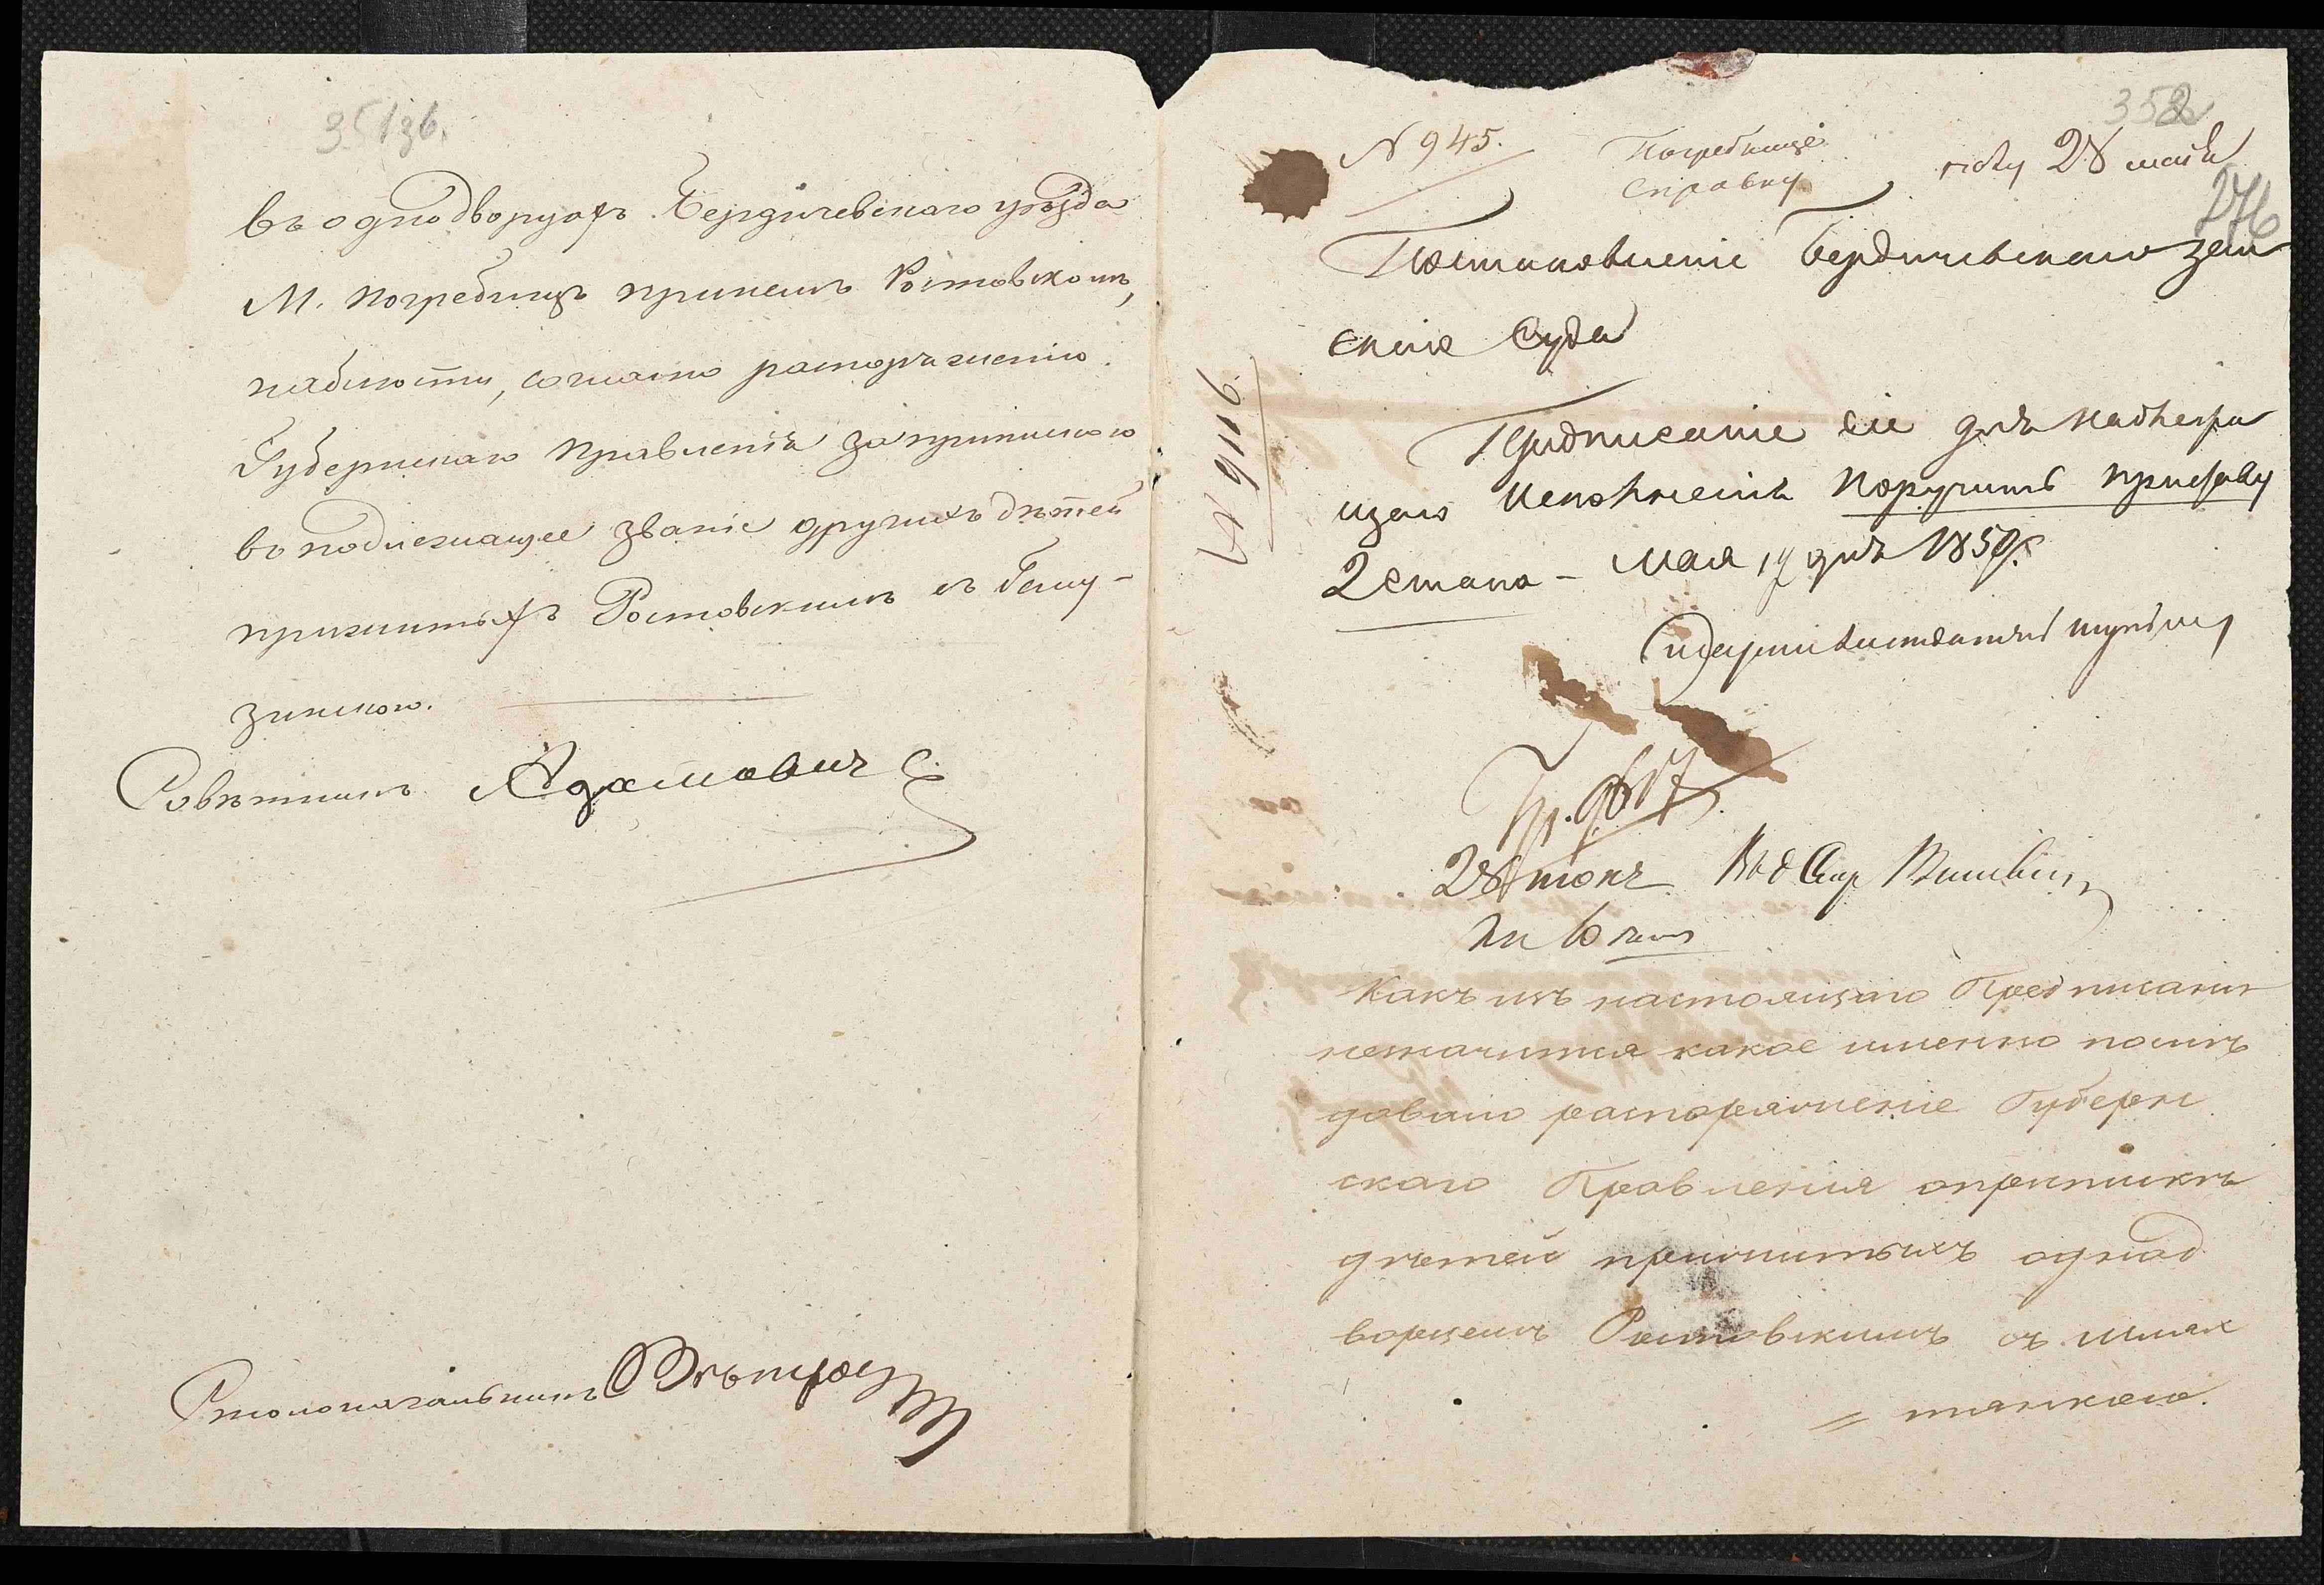 351 зв.
въ однодворцахъ Бердичевскаго уѣзда
М. Погребищъ причемъ Ростовскомъ,
наблюсти, согласно распоряженію
Губернскаго Правленія за припискою
въ подлежащее званіе другихъ дѣтей
прижитыхъ Ростовскимъ съ
зинскою.
Совѣтникъ Адамович
Столоначальникъ
352
276
N 945.
Погребище
справку
28 мая
N 9116.
Постановленіе Бердичевскаго зем
скаго Суда
Предписаніе сіе для надлежа
щаго исполненія поручить приставу
2 стана - Мая 19 дня 1859 г.
28
Какъ изъ настоящаго Предписанія
незначится какое именно послѣ
довало распоряженіе Губерн
скаго Правленія о припискѣ
дѣтей прижитыхъ однод
ворцемъ Ростовскимъ съ шлях
= тянкою.